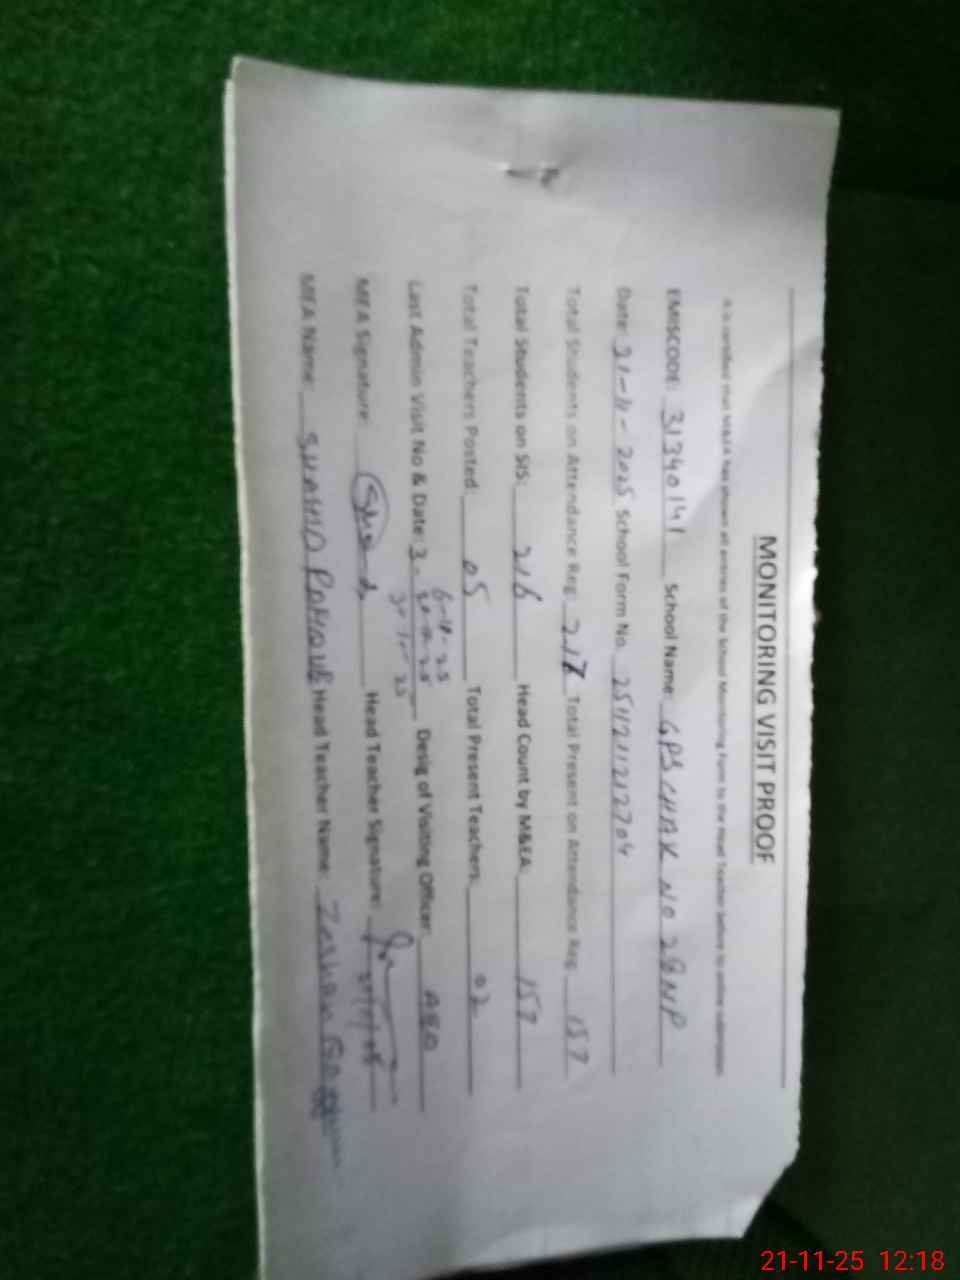 MONITORING VISIT PROOF
It is certified that M&EA has shown all entries of the School Monitoring Form to the Head Teacher before to online submission
EMISCODE: 31340141 School Name: GPS CHAK NO 28NP
Date: 21-11-2025 School Form No. 251121121704
Total Students on Attendance Reg 217 Total Present on Attendance Reg 157
Total Students on SIS: 216 Head Count by M&EA: 157
Total Teachers Posted: 05 Total Present Teachers: 02
Last Admin Visit No & Date: 3 Desig of Visiting Officer: AEO
MEA Signature: Head Teacher Signature:
MEA Name: Head Teacher Name: Zeshan
21-11-25 12:18